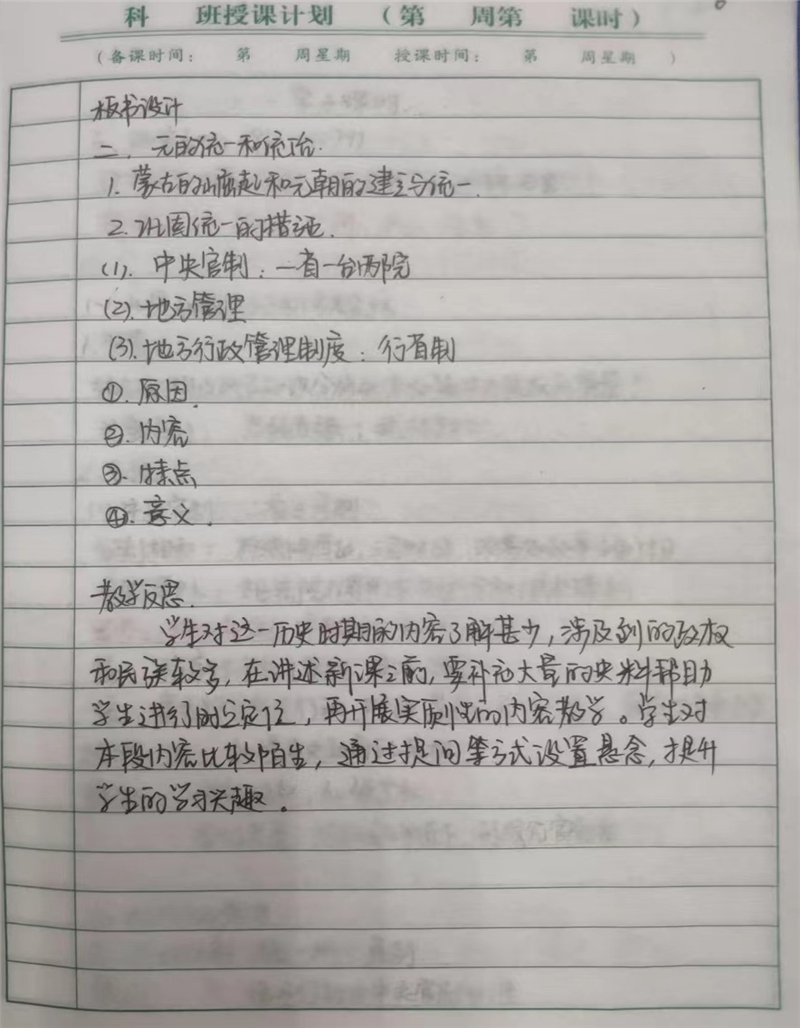 科 班授课计划 （第 周第 课时）
（备课时间： 第 周星期 授课时间： 第 周星期 ）
板书设计
二、元的统一和统治.
1. 蒙古的崛起和元朝的建立与统一.
2. 巩固统一的措施.
(1). 中央官制：一省一台两院
(2). 地方管理
(3). 地方行政管理制度：行省制
①. 原因.
②. 内容
③. 特点
④. 意义.
教学反思.
学生对这一历史时期的内容了解甚少，涉及到的政权
和民族较多，在讲述新课之前，要补充大量的史料帮助
学生进行时空定位，再开展实质性的内容教学。学生对
本段内容比较陌生，通过提问等方式设置悬念，提升
学生的学习兴趣。